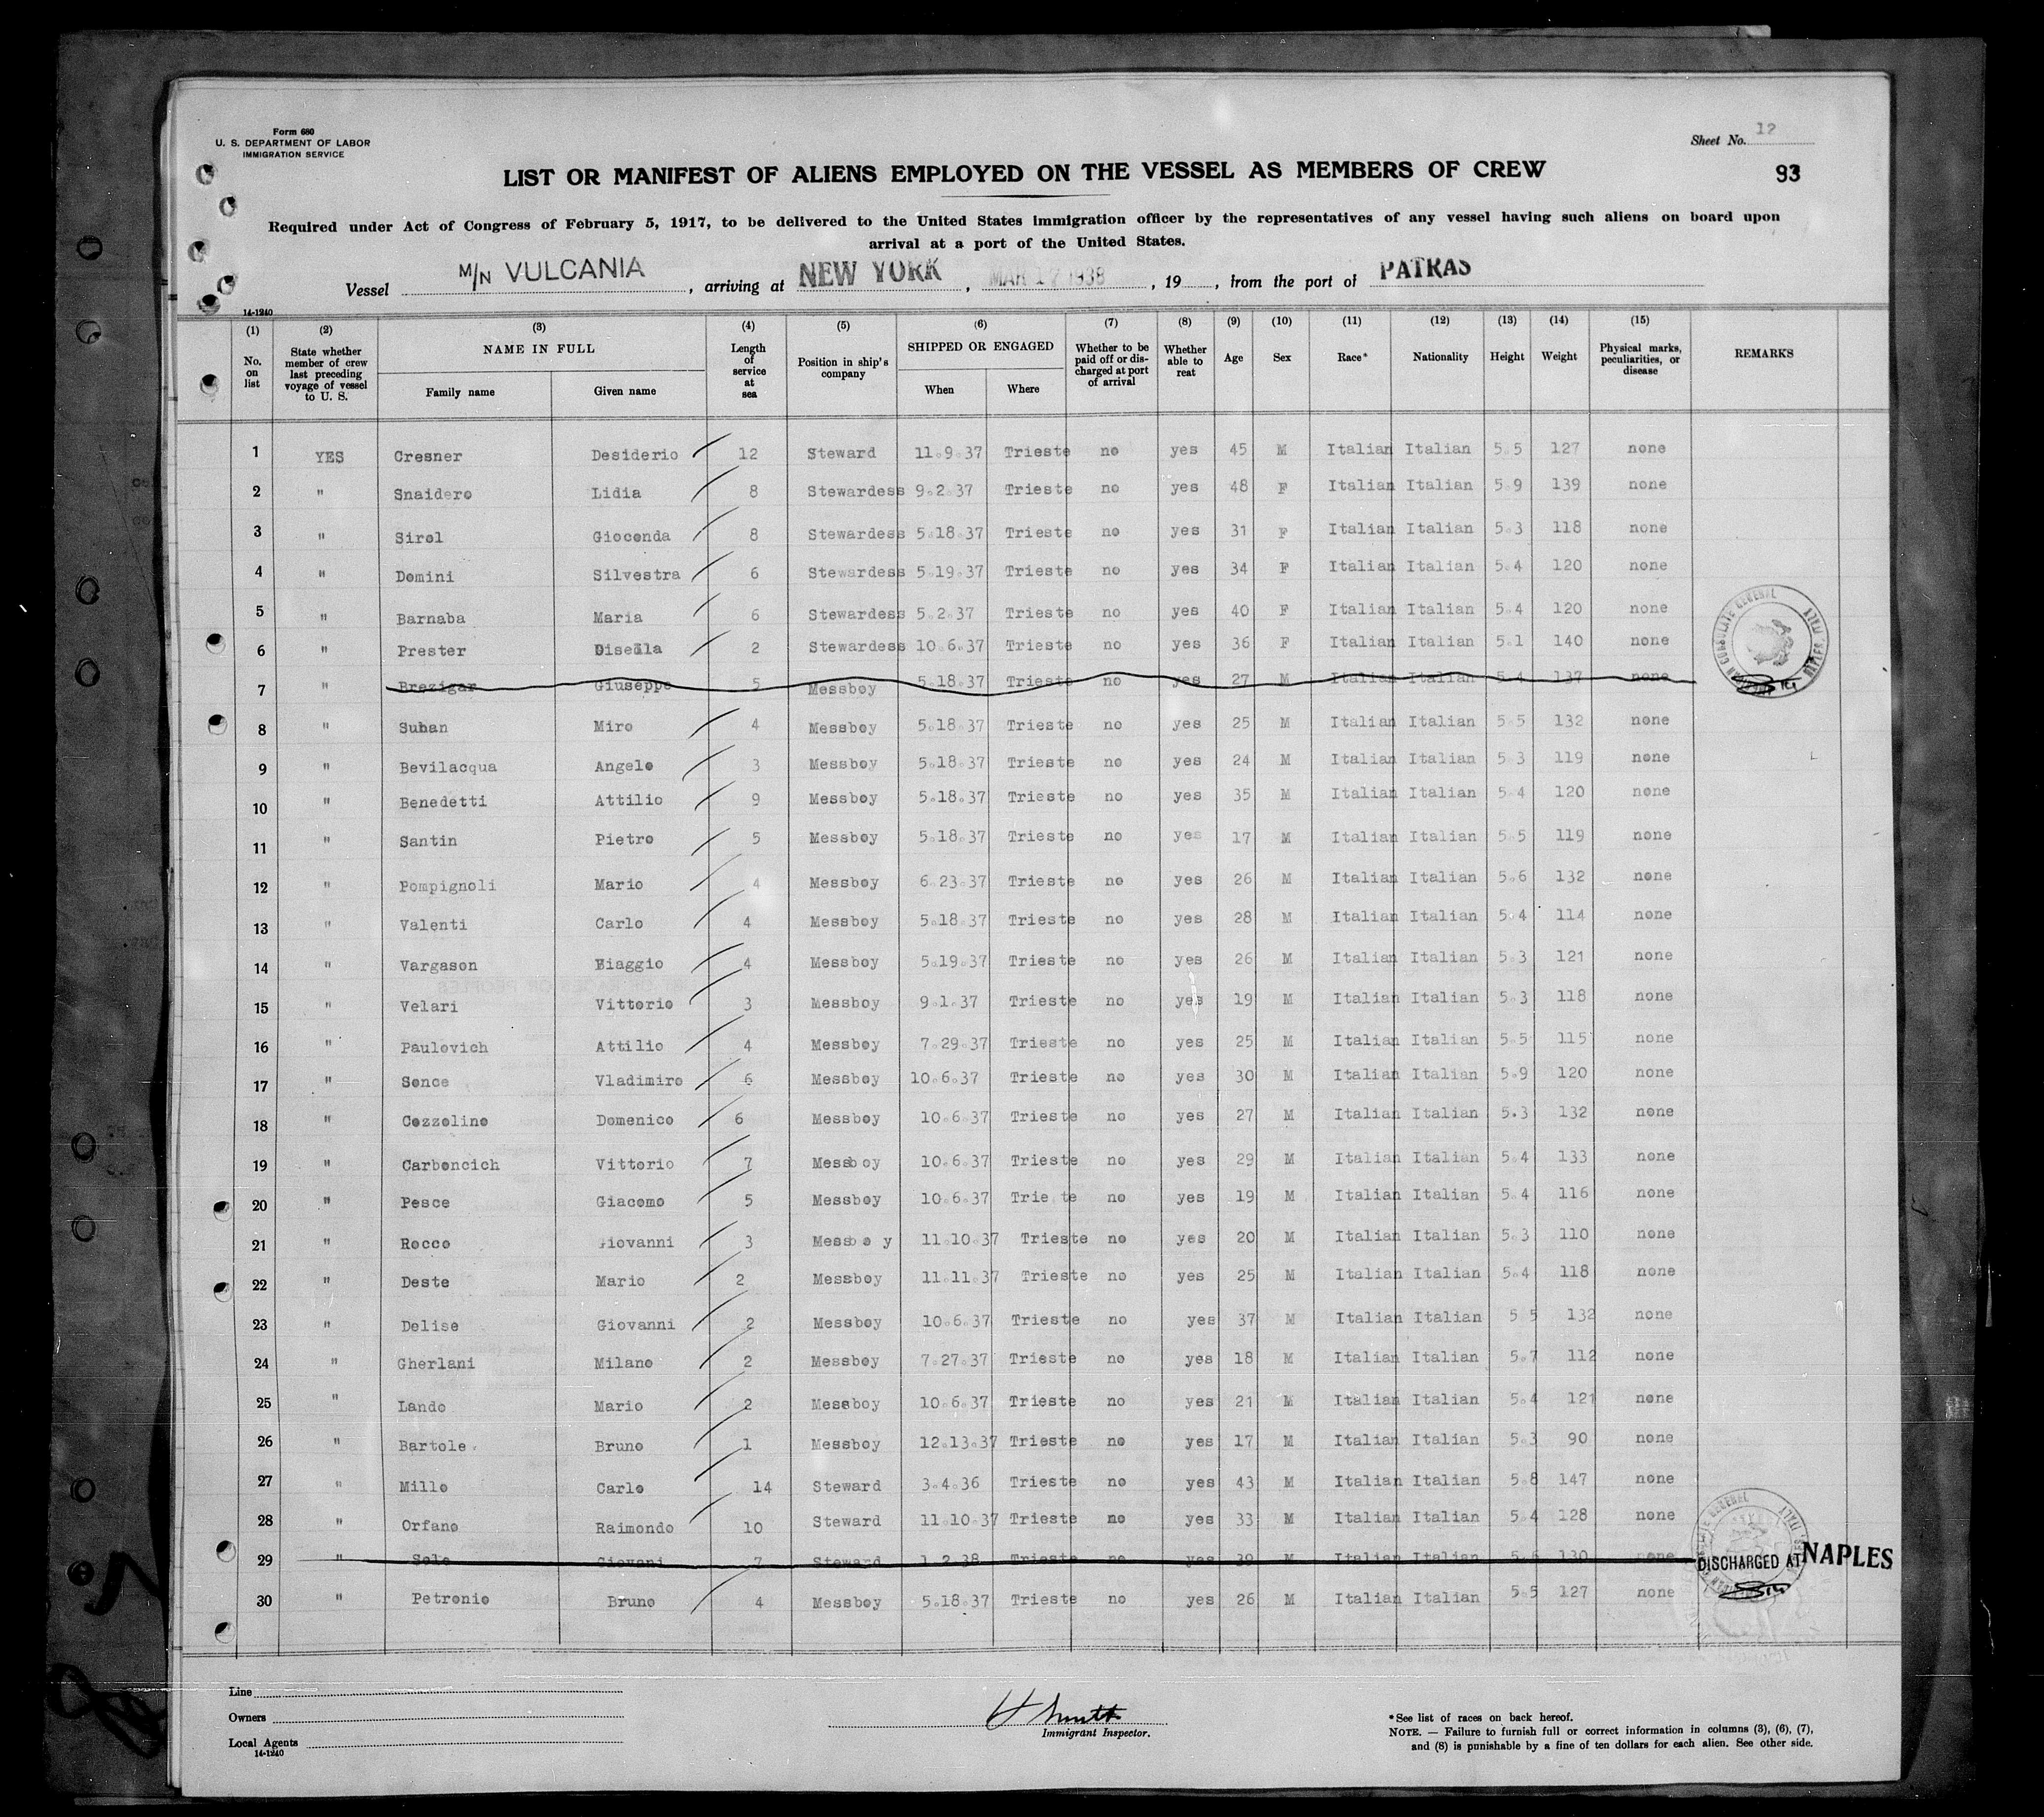 Form 680
U. S. DEPARTMENT OF LABOR
IMMIGRATION SERVICE
Sheet No. 12
93
LIST OR MANIFEST OF ALIENS EMPLOYED ON THE VESSEL AS MEMBERS OF CREW
Required under Act of Congress of February 5, 1917, to be delivered to the United States immigration officer by the representatives of any vessel having such aliens on board upon
arrival at a port of the United States.
Vessel M/N VULCANIA, arriving at NEW YORK, MAR 17 1938, 19, from the port of PATRAS
14-1240
(1) (2) (3) (4) (5) (6) (7) (8) (9) (10) (11) (12) (13) (14) (15)
No. on list State whether member of crew last preceding voyage of vessel to U. S. NAME IN FULL Family name Given name Length of service at sea Position in ship's company SHIPPED OR ENGAGED When Where Whether to be paid off or discharged at port of arrival Whether able to reat Age Sex Race* Nationality Height Weight Physical marks, peculiarities, or disease REMARKS
1 YES Cresner Desiderio 12 Steward 11.9.37 Trieste no yes 45 M Italian Italian 5.5 127 none
2 " Snaidero Lidia 8 Stewardess 9.2.37 Trieste no yes 48 F Italian Italian 5.9 139 none
3 " Sirol Gioconda 8 Stewardess 5.18.37 Trieste no yes 31 F Italian Italian 5.3 118 none
4 " Domini Silvestra 6 Stewardess 5.19.37 Trieste no yes 34 F Italian Italian 5.4 120 none
5 " Barnaba Maria 6 Stewardess 5.2.37 Trieste no yes 40 F Italian Italian 5.4 120 none
6 " Prester Disella 2 Stewardess 10.6.37 Trieste no yes 36 F Italian Italian 5.1 140 none
7 " Brezigar Giuseppe 5 Messboy 5.18.37 Trieste no yes 27 M Italian Italian 5.4 137 none
8 " Suban Miro 4 Messboy 5.18.37 Trieste no yes 25 M Italian Italian 5.5 132 none
9 " Bevilacqua Angelo 3 Messboy 5.18.37 Trieste no yes 24 M Italian Italian 5.3 119 none
10 " Benedetti Attilio 9 Messboy 5.18.37 Trieste no yes 35 M Italian Italian 5.4 120 none
11 " Santin Pietro 5 Messboy 5.18.37 Trieste no yes 17 M Italian Italian 5.5 119 none
12 " Pompignoli Mario 4 Messboy 6.23.37 Trieste no yes 26 M Italian Italian 5.6 132 none
13 " Valenti Carlo 4 Messboy 5.18.37 Trieste no yes 28 M Italian Italian 5.4 114 none
14 " Vargason Biaggio 4 Messboy 5.19.37 Trieste no yes 26 M Italian Italian 5.3 121 none
15 " Velari Vittorio 3 Messboy 9.1.37 Trieste no yes 19 M Italian Italian 5.3 118 none
16 " Paulovich Attilio 4 Messboy 7.29.37 Trieste no yes 25 M Italian Italian 5.5 115 none
17 " Sence Vladimiro 6 Messboy 10.6.37 Trieste no yes 30 M Italian Italian 5.9 120 none
18 " Cozzolino Domenico 6 Messboy 10.6.37 Trieste no yes 27 M Italian Italian 5.3 132 none
19 " Carboncich Vittorio 7 Messboy 10.6.37 Trieste no yes 29 M Italian Italian 5.4 133 none
20 " Pesce Giacomo 5 Messboy 10.6.37 Trie te no yes 19 M Italian Italian 5.4 116 none
21 " Rocco Giovanni 3 Messbo y 11.10.37 Trieste no yes 20 M Italian Italian 5.3 110 none
22 " Deste Mario 2 Messboy 11.11.37 Trieste no yes 25 M Italian Italian 5.4 118 none
23 " Delise Giovanni 2 Messboy 10.6.37 Trieste no yes 37 M Italian Italian 5 5 132 none
24 " Gherlani Milano 2 Messboy 7.27.37 Trieste no yes 18 M Italian Italian 5.7 112 none
25 " Lando Mario 2 Messboy 10.6.37 Trieste no yes 21 M Italian Italian 5.4 121 none
26 " Bartole Bruno 1 Messboy 12.13.37 Trieste no yes 17 M Italian Italian 5.3 90 none
27 " Millo Carlo 14 Steward 3.4.36 Trieste no yes 43 M Italian Italian 5.8 147 none
28 " Orfano Raimondo 10 Steward 11.10.37 Trieste no yes 33 M Italian Italian 5.4 128 none
29 " Sole Giovani 7 Steward 1.2.38 Trieste no yes 39 M Italian Italian 130 none DISCHARGED AT NAPLES
30 " Petronio Bruno 4 Messboy 5.18.37 Trieste no yes 26 M Italian Italian 5.5 127 none
Line
Owners
Local Agents
14-1240
H Smith
Immigrant Inspector.
*See list of races on back hereof.
NOTE. — Failure to furnish full or correct information in columns (3), (6), (7),
and (8) is punishable by a fine of ten dollars for each alien. See other side.